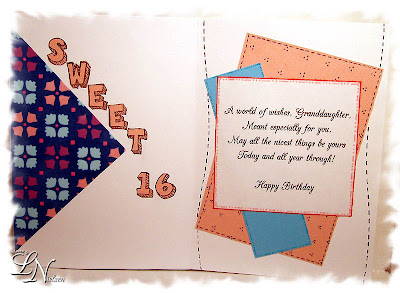 SWEET
16
A world of wishes, Granddaughter,
Meant especially for you,
May all the nicest things be yours
Today and all year through!
Happy Birthday
LNeilson